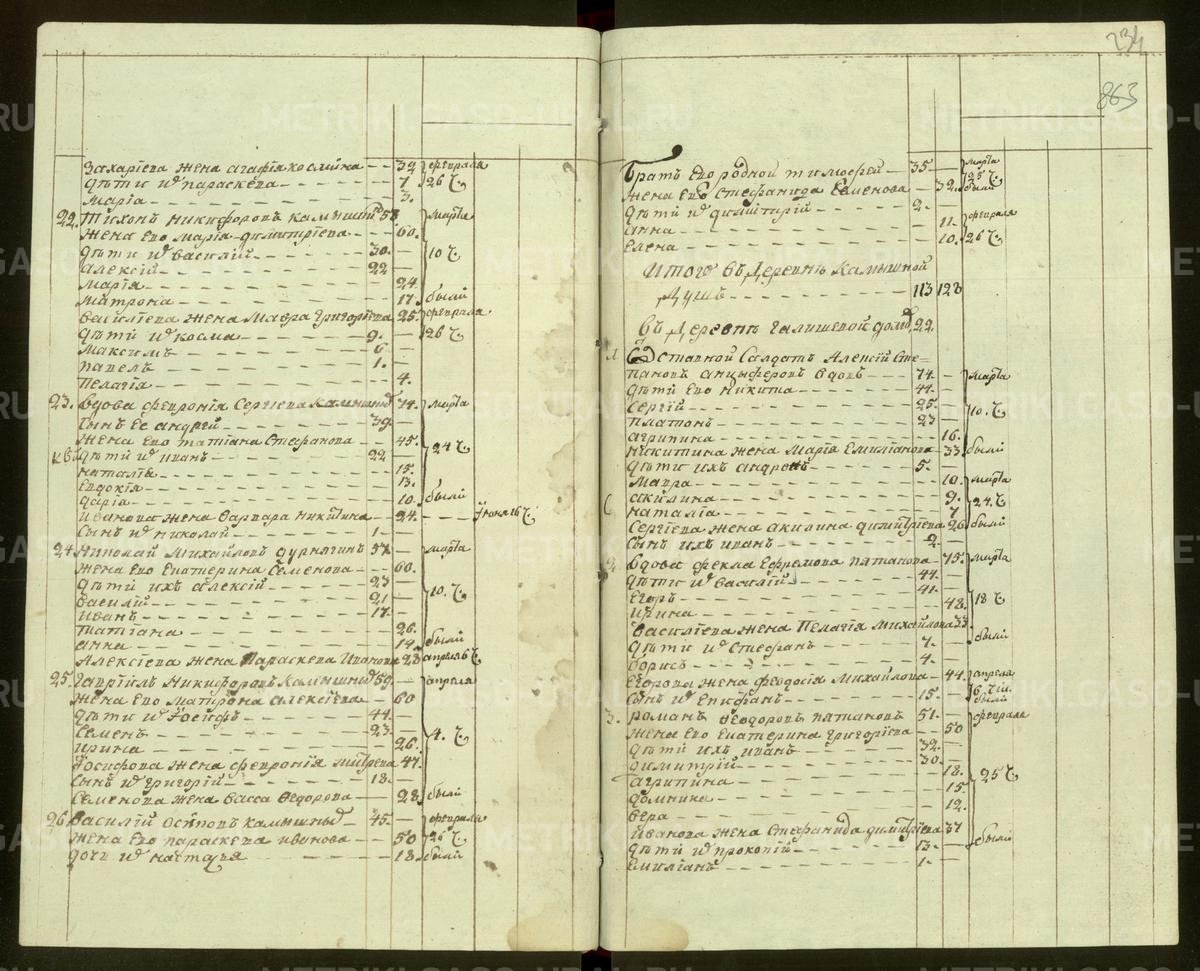 234
863
Захарїева жена агафїя космина - - 32 февраля
дѣти иⷯ параскева - - - 7 26 Ч.
марїа - - - 3.
22. Тихонъ никифоровъ камышнⷩ 58 марта
жена его Марїа димитрїева - - - 60.
дѣти иⷯ василїй - - - 30. 10 Ч.
алексїй - - - 22
марїя - - - 24
матрона - - - 17. были
василїева жена Мавра григорїева 25. февраля
дѣти иⷯ косма - - - 9. 26 Ч.
максимъ - - - 6
павелъ - - - 1.
пелагїя - - - 4.
23. вдова февронїя Сергїева камышныⷯ 74. марта
сынъ ее андрей - - - 39.
жена его татїана Стефанова - - 45. 24 Ч
дѣти иⷯ иванъ - - - 22
наталїя - - - 15.
евдокїя - - - 13.
дарїа - - - 10. были
иванова жена варвара никитина - - 24. - - - Їюня 16 Ч
сынъ иⷯ николай - - - 1.
24. николай Михайловъ дурнягинъ 57. марта
жена его екатерина Семенова - - 60.
дѣти ихъ алексїй - - - 23 10. Ч.
василїй - - - 21
иванъ - - - 17.
татїана - - - 26.
анна - - - 14. были
алексїева жена параскева иванова 28 апреля 6 Ч.
25. гаврїилъ никифоровъ камышныⷯ 59. апреля
жена его матрона алексїева - - 60
дѣти иⷯ Їосифъ - - - 44.
семенъ - - - 23. 4. Ч
ирина - - - 26.
Їосифова жена февронїя 47.
сынъ иⷯ григорїй - - - 18.
семенова жена васса Ѳедорова - - 28. были
26. василїй осїповъ камышныⷯ - 45. февраля
жена его параскева ивонова - 50 26 Ч.
дочь иⷯ настасья - - - 18. были
братъ его родной тимофей - 35 марта
25 Ч.
жена его Стефанида Семенова - 32. были
дѣти иⷯ димитрїй - - - 2.
анна - - - 11. февраля
елена - - - 10. 26 Ч.
Итого въ Деревнѣ камышной
душъ - - - 113 128
въ деревнѣ галишевой домⷪ 22.
1 Ѿставной Солдатъ алексїй Сте=
пановъ анцыферовъ вдовъ - - - 74. марта
дѣти его никита - - - 44.
сергїй - - - 25. 10. Ч
платонъ - - - 23
агрипина - - - 16.
никитина жена марїя емилїанова 33. были
дѣти ихъ андрей - - - 5.
мавра - - - 10. марта
акилина - - - 9. 24. Ч
наталїа - - - 7
сергїева жена акилина димитрїева 26 были
сынъ ихъ иванъ - - - 2.
2 вдова фекла ефремова пятанова - 75. марта
дѣти иⷯ василїй - - - 44.
егоръ - - - 41. 18 Ч
ирина - - - 48.
василїева жена пелагїя михайлова 33.
дѣти иⷯ стефанъ - - - 7. были
борисъ - - - 4.
егорова жена феодосїя михайлова - 44. апреля
сынъ иⷯ епифанъ - - - 15. были
3. романъ Ѳеодоровъ пятановъ - 51. февраля
жена его екатерина григорїева - - 50
дѣти ихъ иванъ - - - 32.
димитрїй - - - 30.
агрипина - - - 18. 25 Ч
домника - - - 15.
вера - - - 12.
иванова жена стефанида димитрїева 37
дѣти иⷯ прокопїй - - - 13. были
емилїанъ - - - 1.